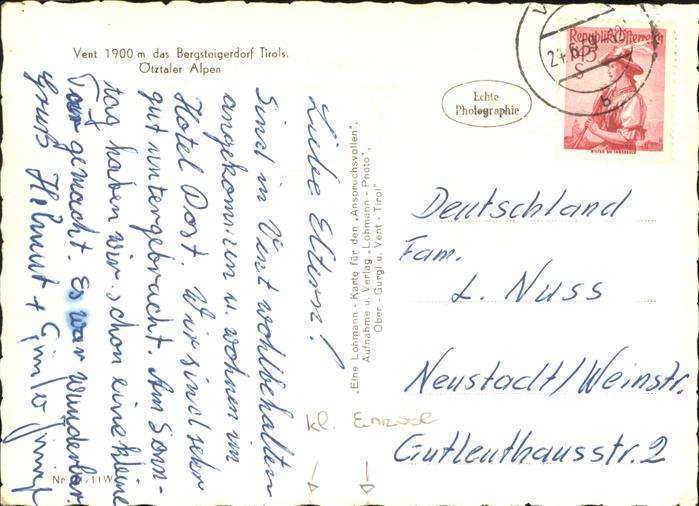 Vent 1900 m das Bergsteigerdorf Tirols.
Ötztaler Alpen
Liebe Eltern!
Sind in Vent wohlbehalten
angekommen u. wohnen im
Hotel Post. Wir sind sehr
gut untergebracht. Am Sonn-
tag haben wir schon eine kleine
Tour gemacht. Es war wunderbar.
Gruß Helmut + Günter
"Eine Lohmann - Karte für den Anspruchsvollen",
Aufnahme u. Verlag „Lohmann - Photo",
Ober - Gurgl u. Vent - Tirol"
Echte
Photographie
Republik Österreich
Deutschland
Fam.
L. Nuss
Neustadt/Weinstr.
Gutleuthausstr. 2
kl.
Nr